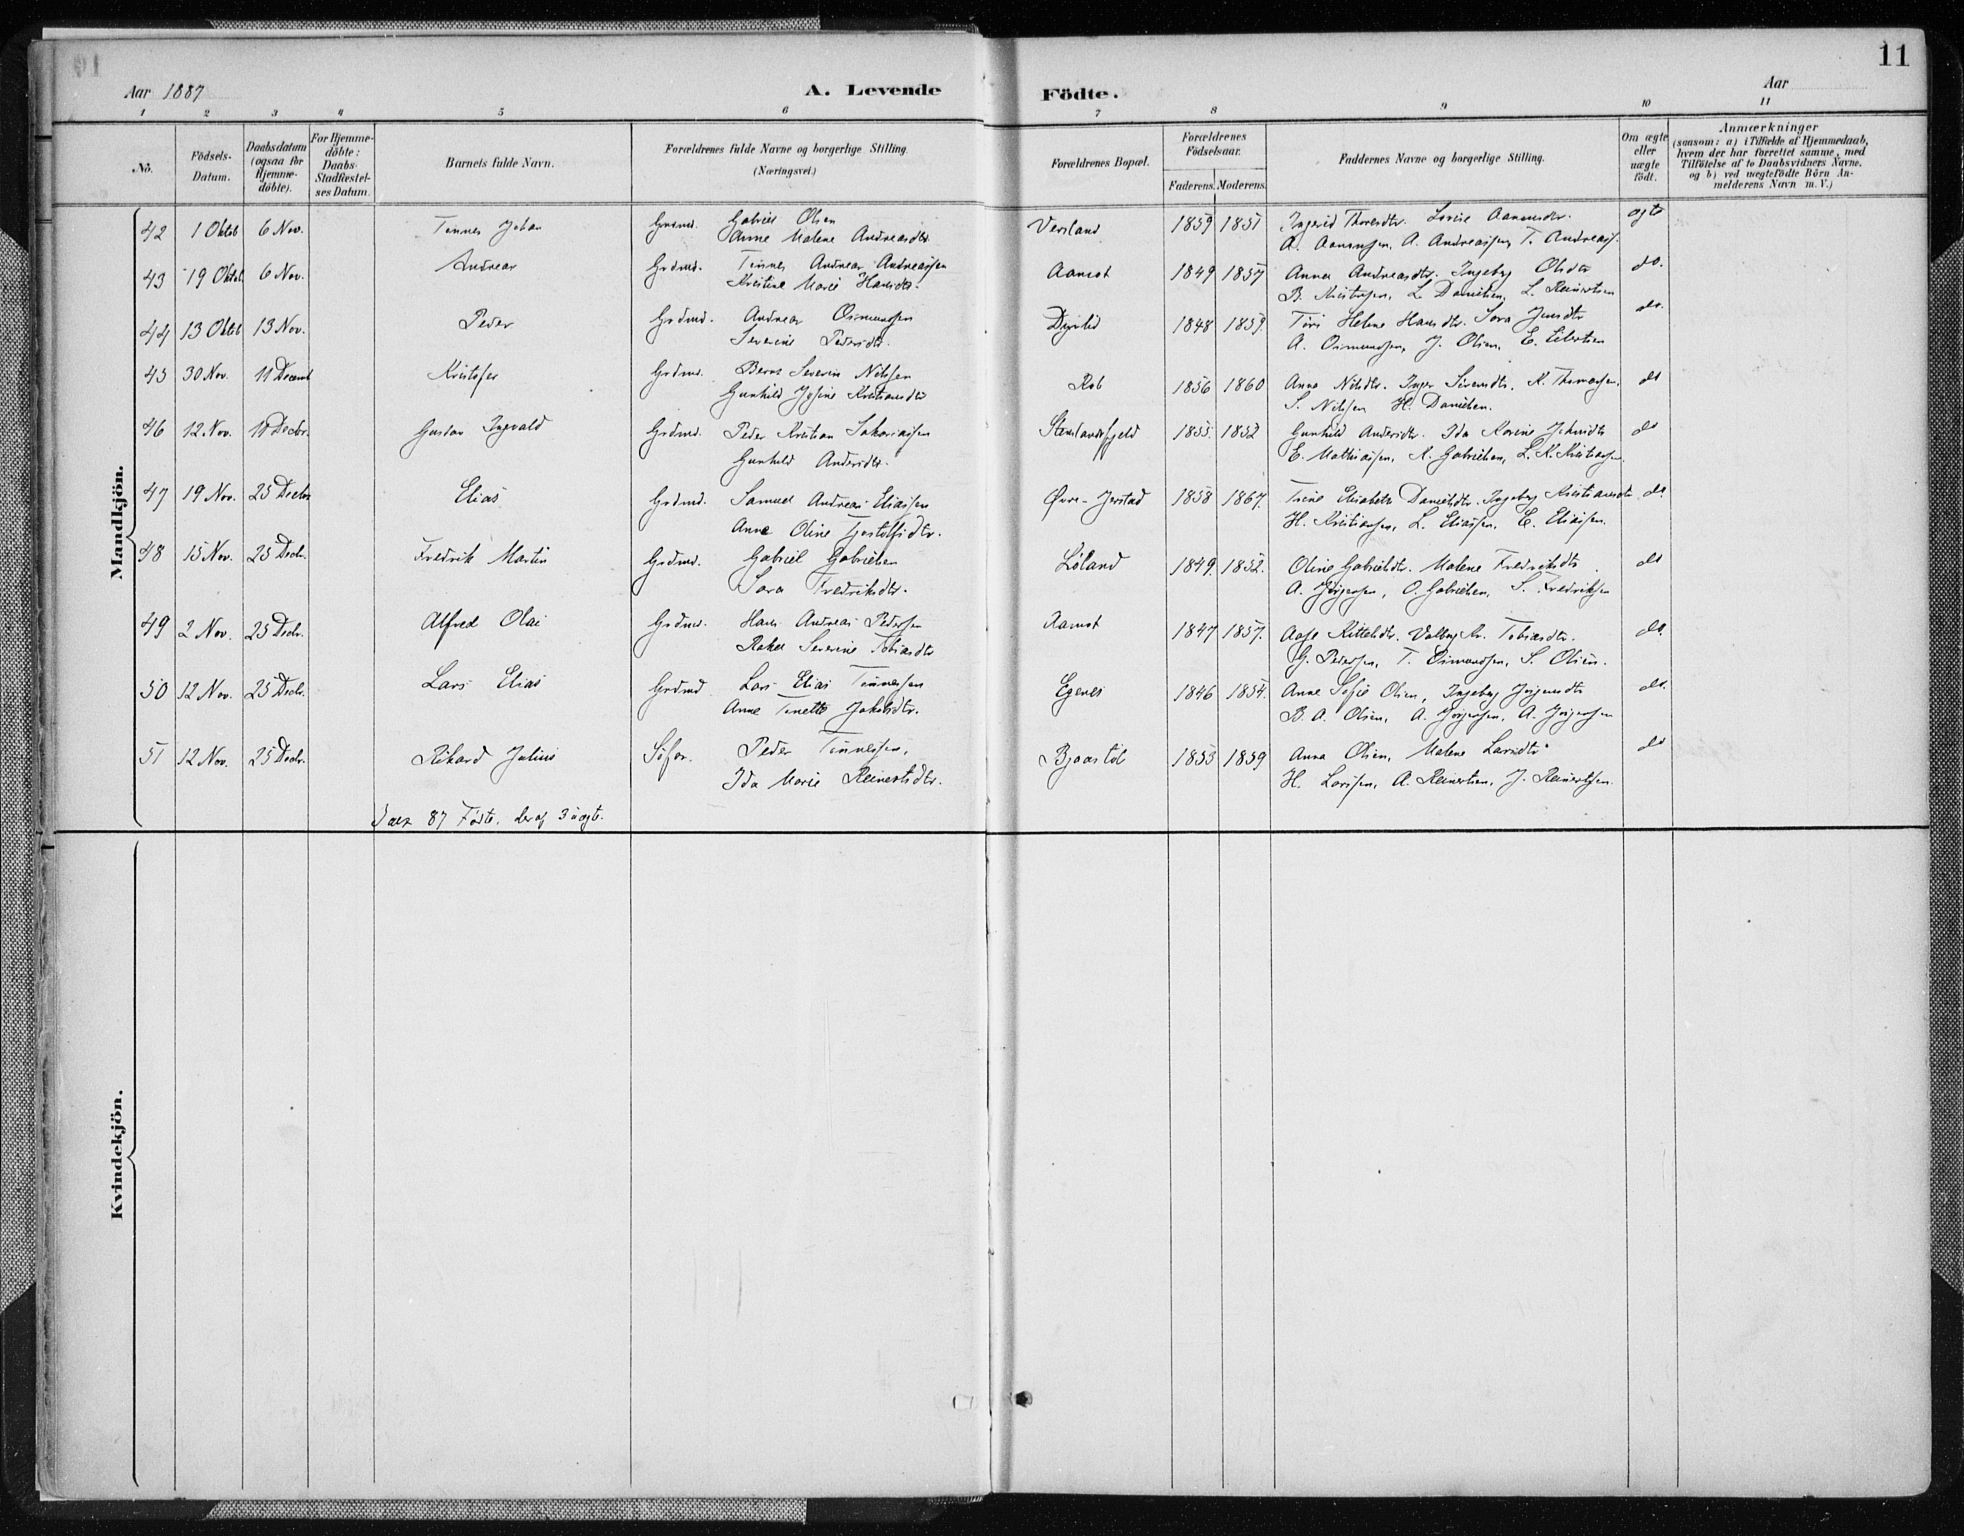 11
Aar 1887
A. Levende Födte.
Aar
1 2 3 4 5 6 7 8 9 10 11
No.
Födsels-Datum.
Daabsdatum (ogsaa for Hjemme-döbte).
For Hjemme-döbte: Daabs-Stadfæstel-ses Datum.
Barnets fulde Navn.
Forældrenes fulde Navne og borgerlige Stilling. (Næringsvei.)
Forældrenes Bopæl.
Forældrenes Födselsaar.
Faderens. Moderens.
Faddernes Navne og borgerlige Stilling.
Om ægte eller uægte födt.
Anmærkninger
(saasom: a) i Tilfælde af Hjemmedaab,
hvem der har forrettet samme, med
Tilföielse af to Daabsvidners Navne,
og b) ved uægtefödte Börn An-
melderens Navn m. V.)
Mandkjön.
42 1 Oktob 6 Nov. Tønnes Johan Grdmd. Gabriel Olsen 1859 1851 Ingerid Thoresdtr. Lovise Aanensdtr. ægte
Anne Malene Andreasdtr. A. Aanensen, A. Andreassen, T. Andreass.
43 19 Oktob. 6 Nov. Andreas Grdmd. Tønnes Andreas Andreassen Aamot 1849 1857 Anna Andreasdtr. Ingeborg Olsdtr do.
Kristine Marie Hansdtr. B. Kristensen, L. Danielsen, L. Reinertsen
44 13 Oktob 13 Nov. Peder Grdmd. Andreas Osmundsen Dyrlid 1848 1859. Tori Helene Hansdtr. Sara Jensdtr do.
Severine Pedersdtr. A. Osmundsen, J. Olsen, E. Eilertsen
45 30 Nov. 11 Decemb Kristofer Grdmd. Bernt Severin Nilssen 1856 1860 Anna Nilsdtr. Inger Sivertsdtr. K. Thomassen. do
Gunhild Josine Kristiansdtr S. Nilssen H. Danielsen.
46 12 Nov. 11 Decbr. Gustav Ingvald Grdmd. Peder Kristian Sakariassen Stenlandsfjeld 1855. 1852 Gunhild Andersdtr. Ida Karine Johnsdtr do
Gunhild Andersdtr. E. Mathiassen, K. Gabrielsen, L. K. Kristiansen.
47 19 Nov. 25 Decbr Elias Grdmd. Samuel Andreas Eliassen Øvre-Jerstad 1858 1867. Trine Elisabeth Danielsdtr. Ingeborg Kristiansdtr do.
Anne Oline Gjertolfsdtr. H. Kristiansen, L. Eliassen, E. Eliassen.
48 15 Nov. 25 Decbr. Fredrik Martin Grdmd. Gabriel Gabrielsen Løland 1849. 1852. Oline Gabrielsdtr. Malene Fredriksdtr. do
Sara Fredriksdtr. A. Jørgensen, O. Gabrielsen, S. Fredriksen
49 2 Nov. 25 Decbr. Alfred Olai Grdmd. Hans Andreas Pedersen Aamot 1847 1857. Aase Kittelsdtr. Valborg Kr. Tobiasdtr. do.
Rakel Severine Tobiasdtr G. Pedersen, T. Osmundsen, S. Olsen.
50 12 Nov. 25 Decbr. Lars Elias Grdmd Lars Elias Tønnessen Egenes 1846 1854. Anne Sofie Olsen, Ingeborg Jørgensdtr do.
Anne Tonette Jakobsdtr. B. A. Olsen, A. Jørgensen, A. Jørgensen
51 12 Nov. 25 Decbr. Rikard Julius Søfar. Peder Tønnessen, Bjaastöl 1853 1859 Anna Olsen, Malene Larsdtr. do
Ida Marie Reinertsdtr. H. Larssen, A. Reinertsen, J. Reinertsen.
I alt 87 Fødte, deraf 3 uægte.
Kvindekjön.